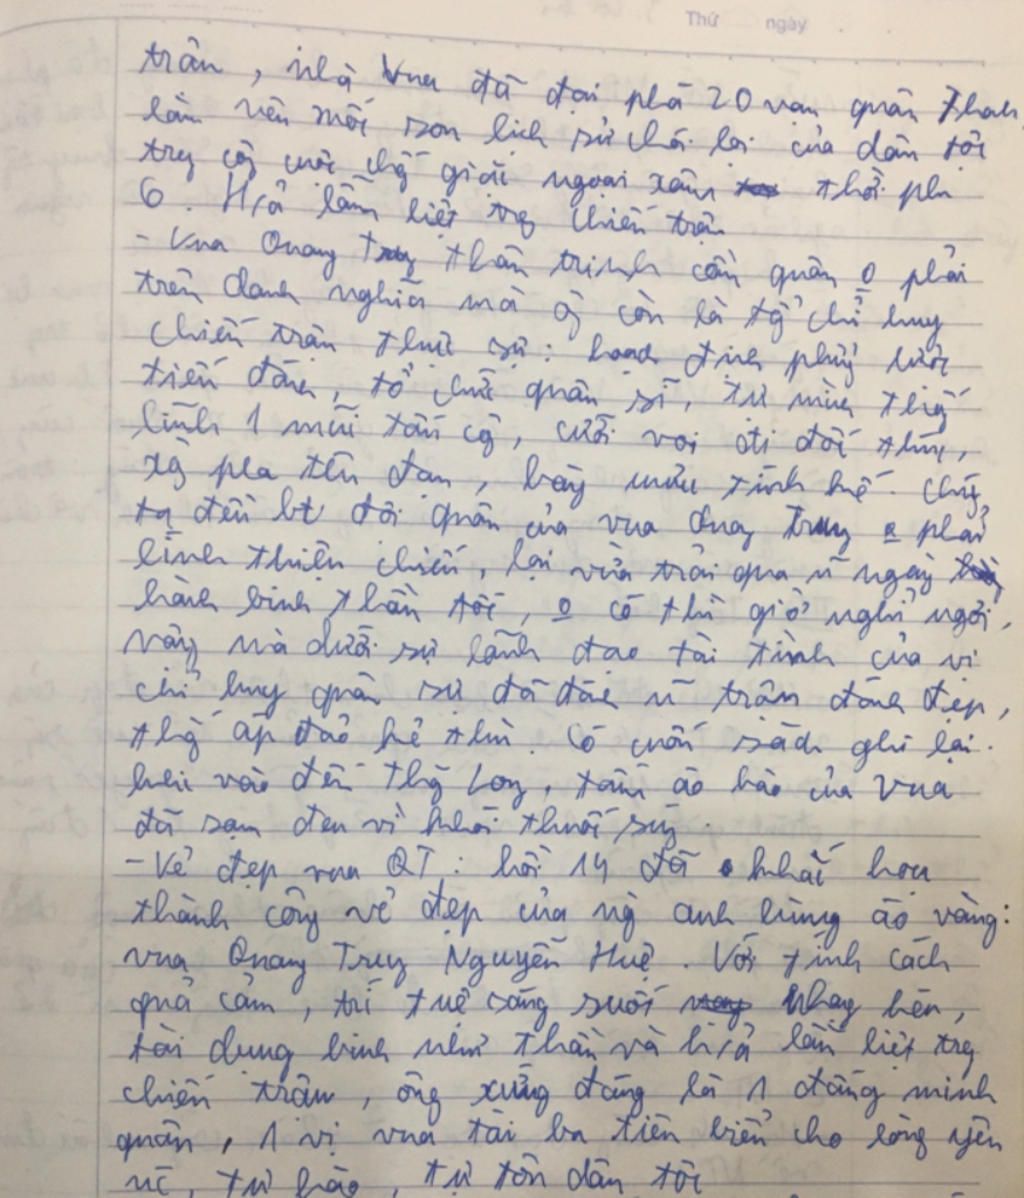 Thứ ngày
trân, nhà Vua đã đại phá 20 vạn quân Thanh
làm nên mốc son lịch sử chói lọi của dân tộc
trg cộ cuộc chg giặc ngoại xâm thời pk
6. H/ả lẫm liệt trg chiến trận
- Vua Quang Trug thân trinh cầm quân o phải
trên danh nghĩa mà ôg còn là tổg chỉ huy
chiến trân thực sự: hoạch định phươg lược
tiến đánh, tổ chức quân sĩ, tự mình thốg
lĩnh 1 mũi tấn côg, cưỡi voi đi đốc thúc,
xôg pha tên đạn, bày mưu tính kế. Chúg
ta đều bt đội quân của vua Quag Trug o phải
lính thiện chiến, lại vừa trải qua n~ ngày
hành binh thần tốc, o có thì giờ nghỉ ngơi,
vậy mà dưới sự lãnh đạo tài tình của vị
chỉ huy quân sự đã đánh n~ trận đánh đẹp,
thắg áp đảo kẻ thù. Có cuốn sách ghi lại.
khi vào đến Thăg Log, tấm áo bào của vua
đã sạm đen vì khói thuốc súg.
- Vẻ đẹp vua QT: hồi 14 đã khắc họa
thành công vẻ đẹp của ng` anh hùng áo vàng:
vua Quang Trug Nguyễn Huệ. Với tính cách
quả cảm, trí tuệ sáng suốt nhạy bén,
tài dụng binh như thần và h/ả lẫm liệt trg
chiến trân, ông xứng đáng là 1 đấng minh
quân, 1 vị vua tài ba tiêu biểu cho lòng yêu
nc, tự hào, tự tôn dân tộc